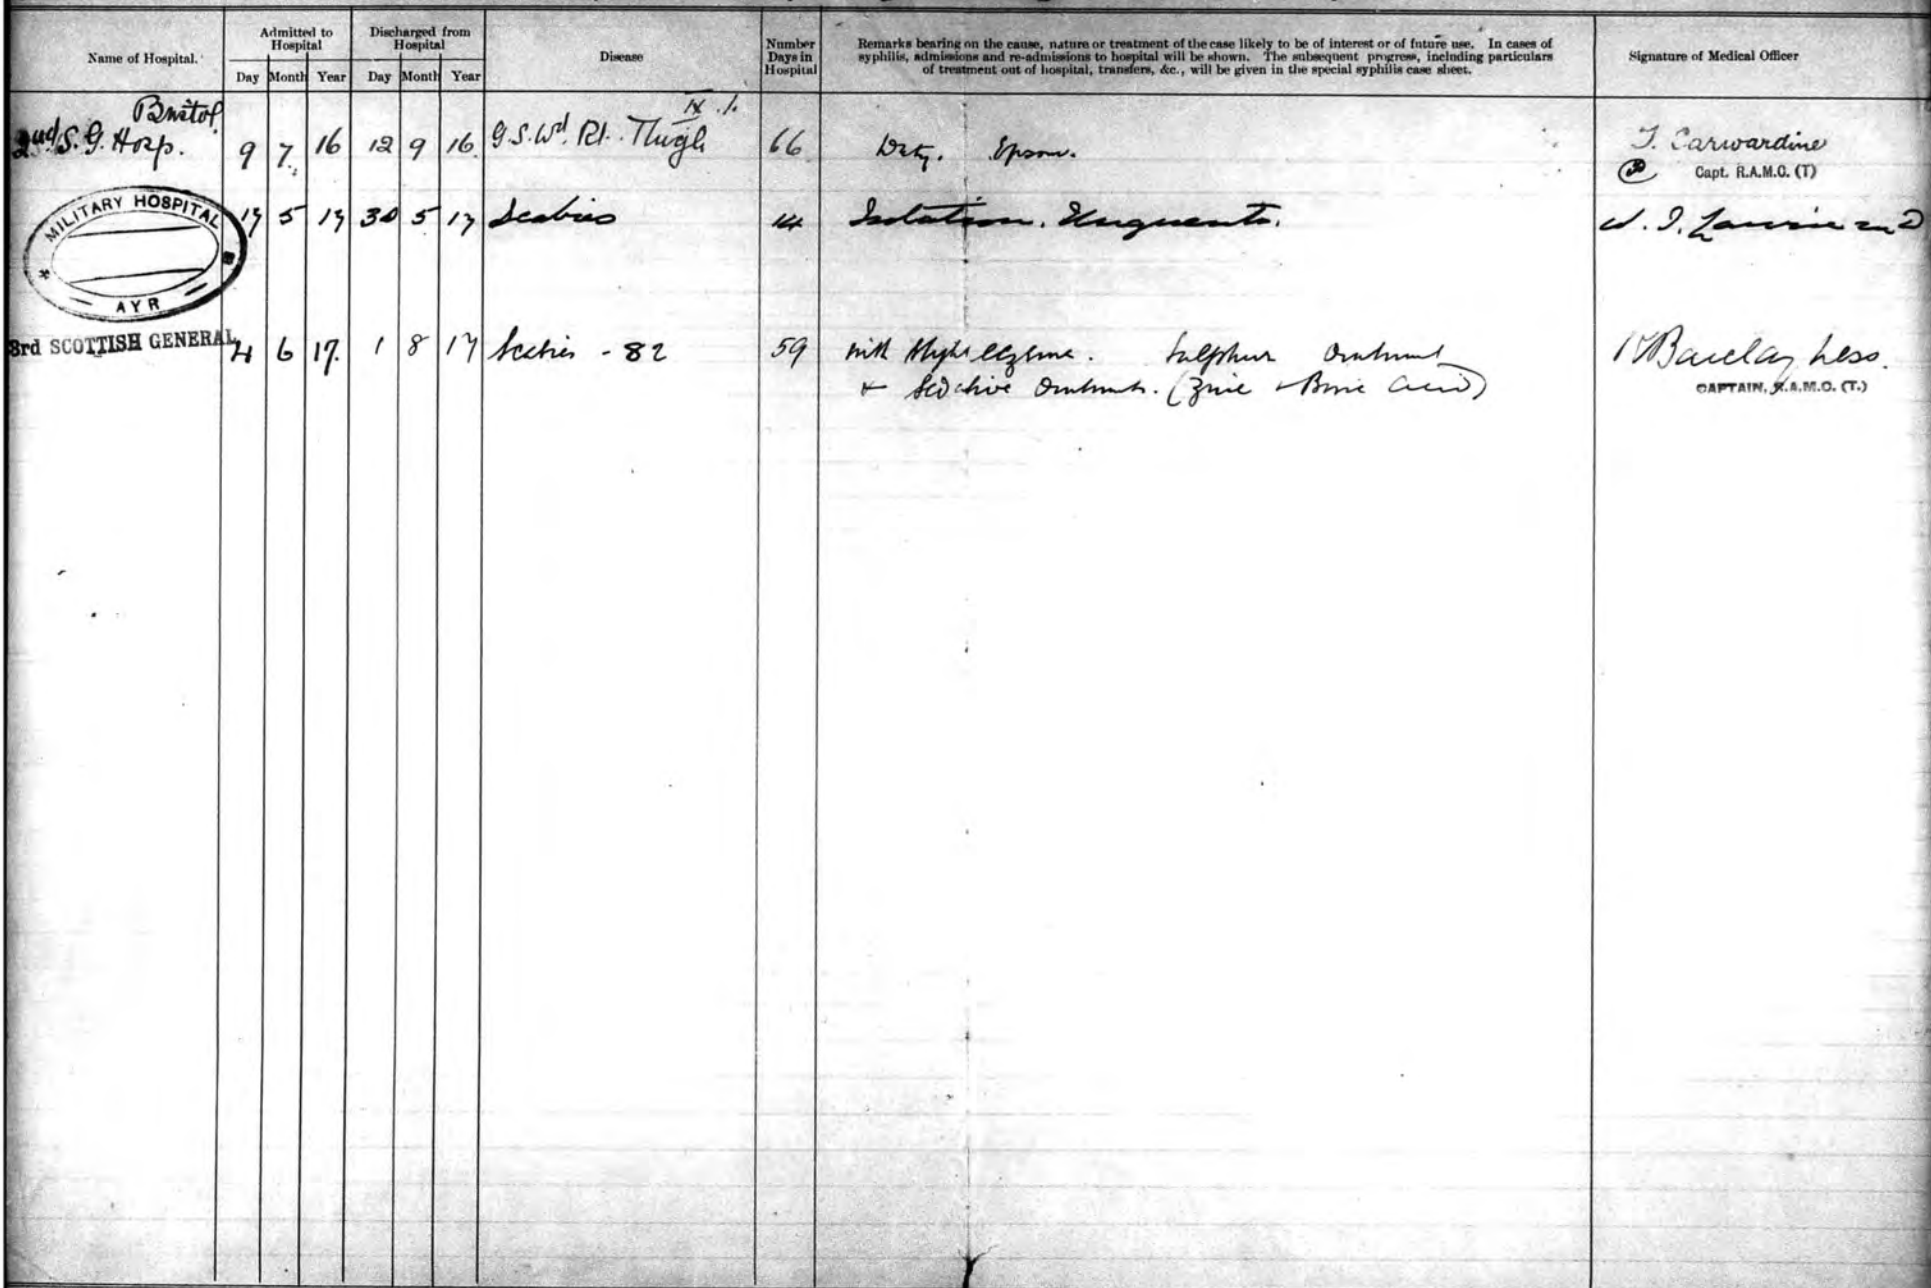 Name of Hospital.
Admitted to Hospital
Discharged from Hospital
Day Month Year Day Month Year
Disease
Number Days in Hospital
Remarks bearing on the cause, nature or treatment of the case likely to be of interest or of future use. In cases of
syphilis, admissions and re-admissions to hospital will be shown. The subsequent progress, including particulars
of treatment out of hospital, transfers, &c., will be given in the special syphilis case sheet.
Signature of Medical Officer
Bristol IX.1.
2nd S. G. Hosp. 9 7 16 12 9 16 G.S.Wd. Rt. Thigh 66 Duty. Epsom. T. Carwardine
Capt. R.A.M.C. (T)
MILITARY HOSPITAL
AYR
17 5 17 30 5 17 Scabies 14 Isolation. Unguents. W. J. Lawrie
3rd SCOTTISH GENERAL 4 6 17. 1 8 17 Scabies - 82 59 with slight eczema. Sulphur Ointment Barclay Ness.
+ Sedative Ointment. (Zinc + Boric Acid)
CAPTAIN, R.A.M.C. (T.)